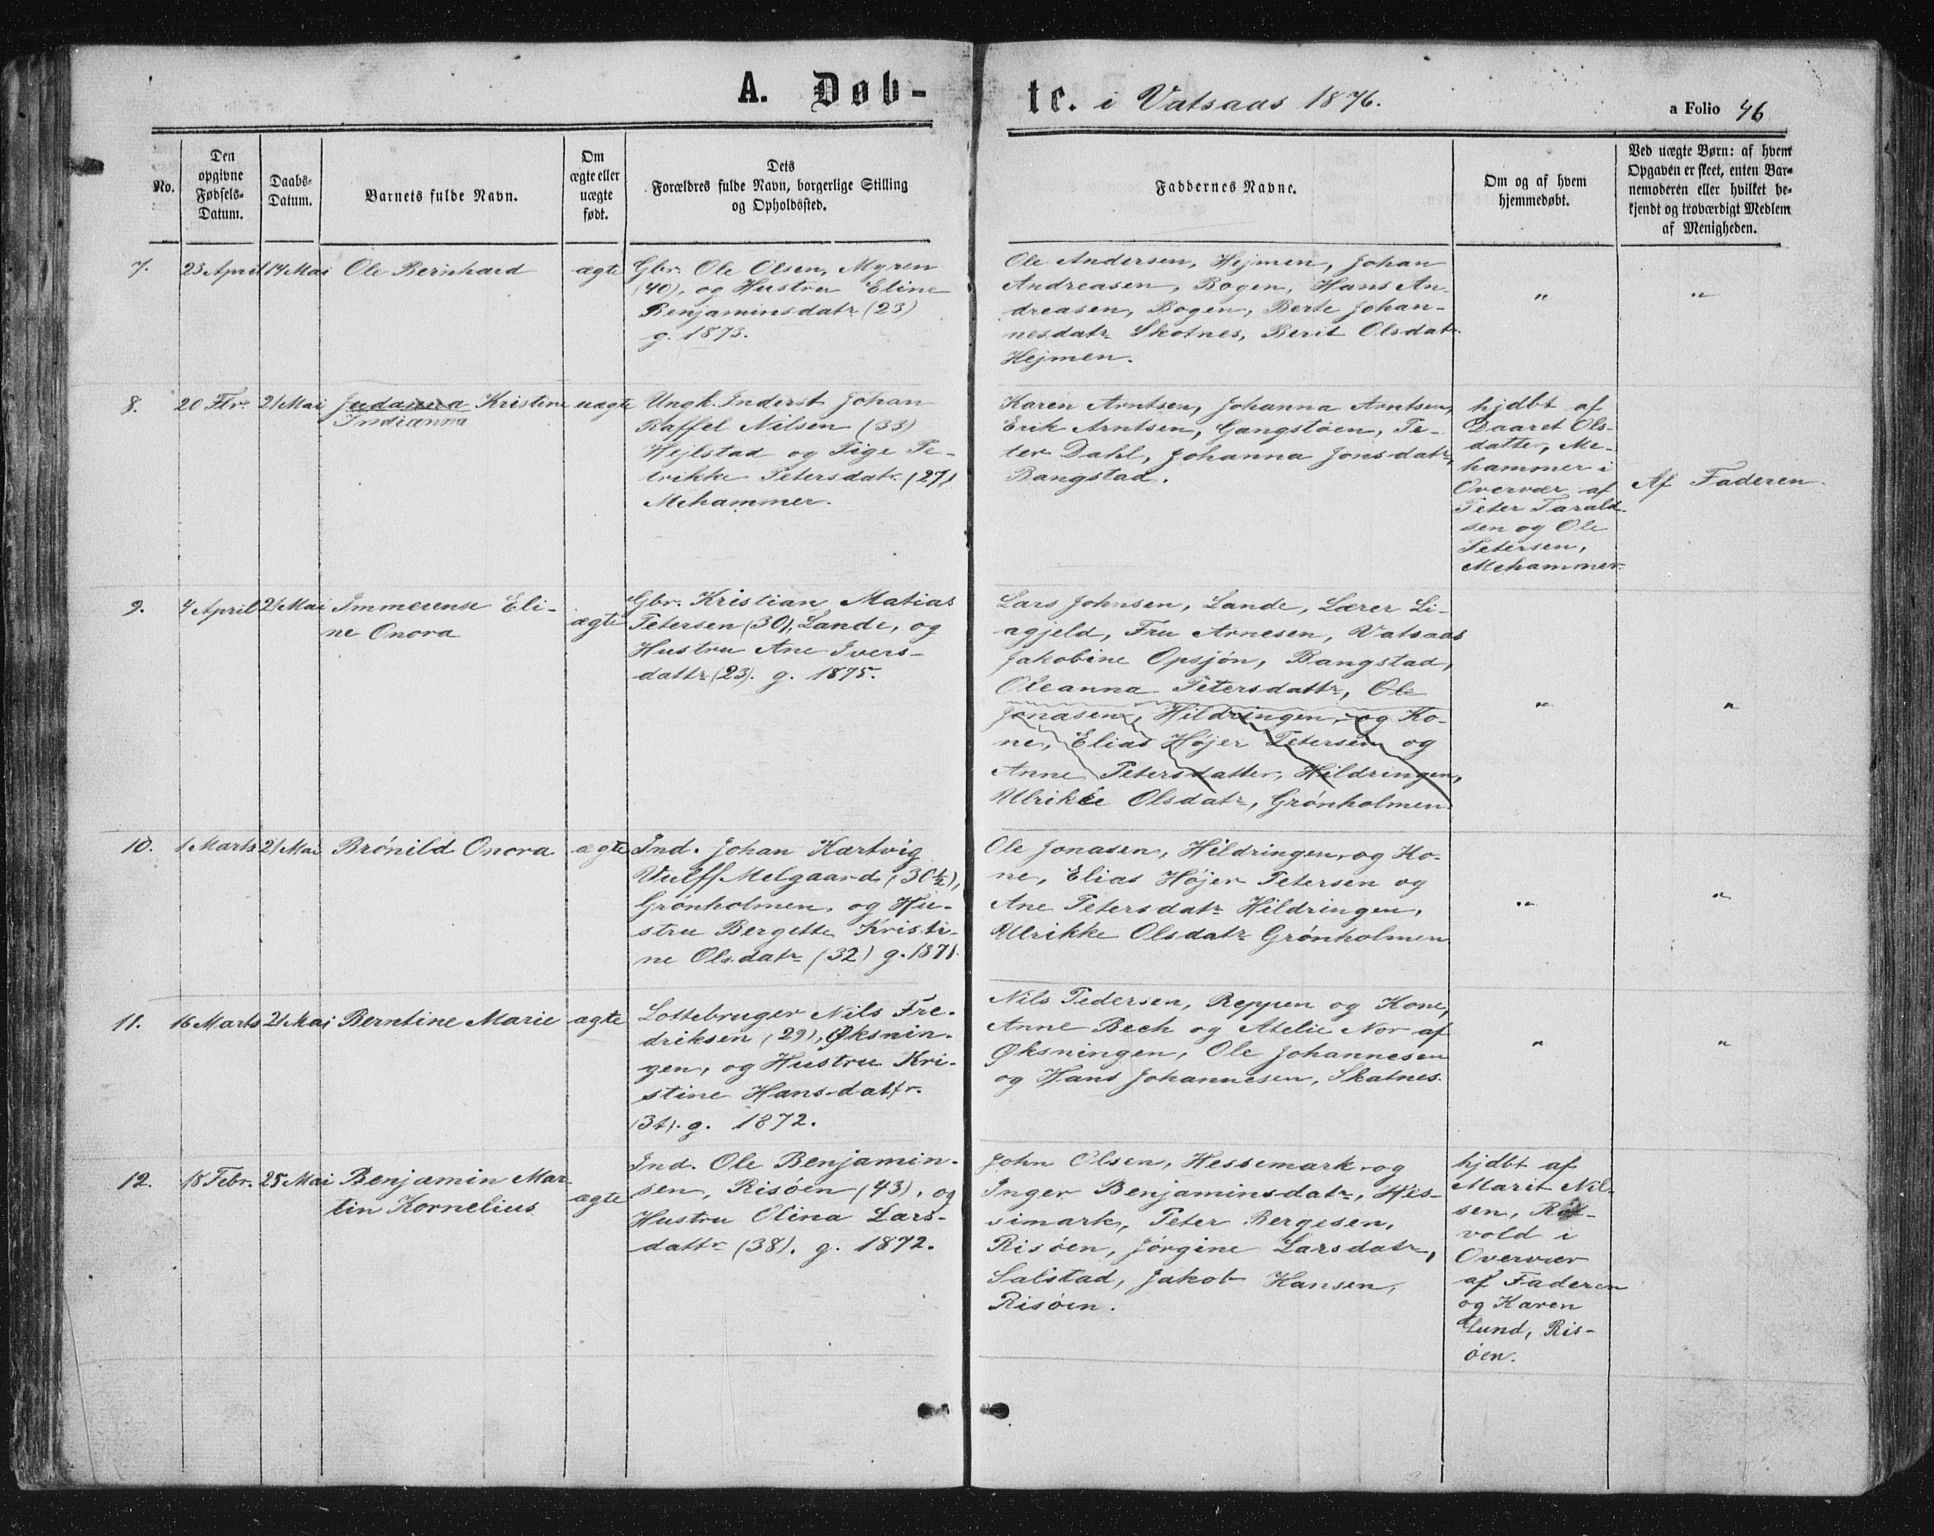 A. Døb-
te. i Vatsaas 1876.
a Folio 46
No.
Den
opgivne
Fødsels-
Datum.
Daabs-
Datum.
Barnets fulde Navn.
Om
ægte eller
uægte
født.
Dets
Forældres fulde Navn, borgerlige Stilling
og Opholdssted.
Faddernes Navne.
Om og af hvem
hjemmedøbt.
Ved uægte Børn: af hvem
Opgaven er skeet, enten Bar-
nemoderen eller hvilket be-
kjendt og troværdigt Medlem
af Menigheden.
7.
23 April
14 Mai
Ole Bernhard
ægte
Gbr. Ole Olsen, Myren
(40), og Hustru Eline
Benjaminsdatr (23)
g. 1873.
Ole Andersen, Hejmen, Johan
Andreasen, Bogen, Hans An-
dreasen, Bogen, Berte Johan-
nesdatr Skotnes, Berit Olsdatr
Hejmen.
"
"
8.
20 Fbr.
21 Mai
Judanna Kristine
Indianna
uægte
Ungk. Inderst Johan
Raffel Nilsen (33)
Hejlstad og Pige Pe-
trikke Petersdatr (27)
Mehammer.
Karen Arntsen, Johanna Arntsen,
Erik Arntsen, Gangstøen, Pe-
ter Dahl, Johanna Jonsdatr,
Bangstad.
hjdbt af
Daaret Ols-
datter, Me-
hammer i
Overvær af
Peter Tarald-
sen og Ole
Petersen,
Mehammer.
Af Faderen.
9.
4 April
21 Mai
Immerense Eli-
ne Onora
ægte
Gbr. Kristian Matias
Petersen (30), Lande, og
Hustru Ane Ivers-
dattr (23). g. 1875.
Lars Johnsen, Lande, Lærer Li-
agjeld, Fru Arnesen, Vatsaas
Jakobine Opsjøn, Bangstad,
Oleanna Petersdattr, Ole
Jonasen, Hildringen, og Ko-
ne, Elias Højer Petersen og
Anne Petersdatter, Hildringen,
Ulrikke Olsdatr, Grønholmen
"
"
10.
1 Marts
21 Mai
Brønild Onora
ægte
Ind. Johan Hartvig
Wulff Melgaard (30½),
Grønholmen, og Hu-
stru Bergette Kristi-
ne Olsdatr (32) g. 1871.
Ole Jonasen, Hildringen, og Ko-
ne, Elias Højer Petersen og
Ane Petersdatr Hildringen,
Ulrikke Olsdatr Grønholmen
"
"
11.
16 Marts
21 Mai
Berntine Marie
ægte
Lottebruger Nils Fre-
driksen (29), Øksnin-
gen, og Hustru Kri-
stine Hansdattr.
(34). g. 1872.
Nils Pedersen, Reppen og Kone,
Anne Bech og Atelie Nor af
Øksningen, Ole Johannesen
og Hans Johannesen, Skatnes.
"
"
12.
18 Febr.
25 Mai
Benjamin Mar-
tin Kornelius
ægte
Ind. Ole Benjamin-
sen, Risøen (43), og
Hustru Olina Lars-
dattr (38). g. 1872.
John Olsen, Hessemark og
Inger Benjaminsdatr, Hes-
simark, Peter Bergesen,
Risøen, Jørgine Larsdatr,
Salstad, Jakob Hansen,
Risøen.
hjdbt af
Marit Nil-
sen,
vold i
Overvær
af Faderen
og Karen
Lund, Ris-
øen.